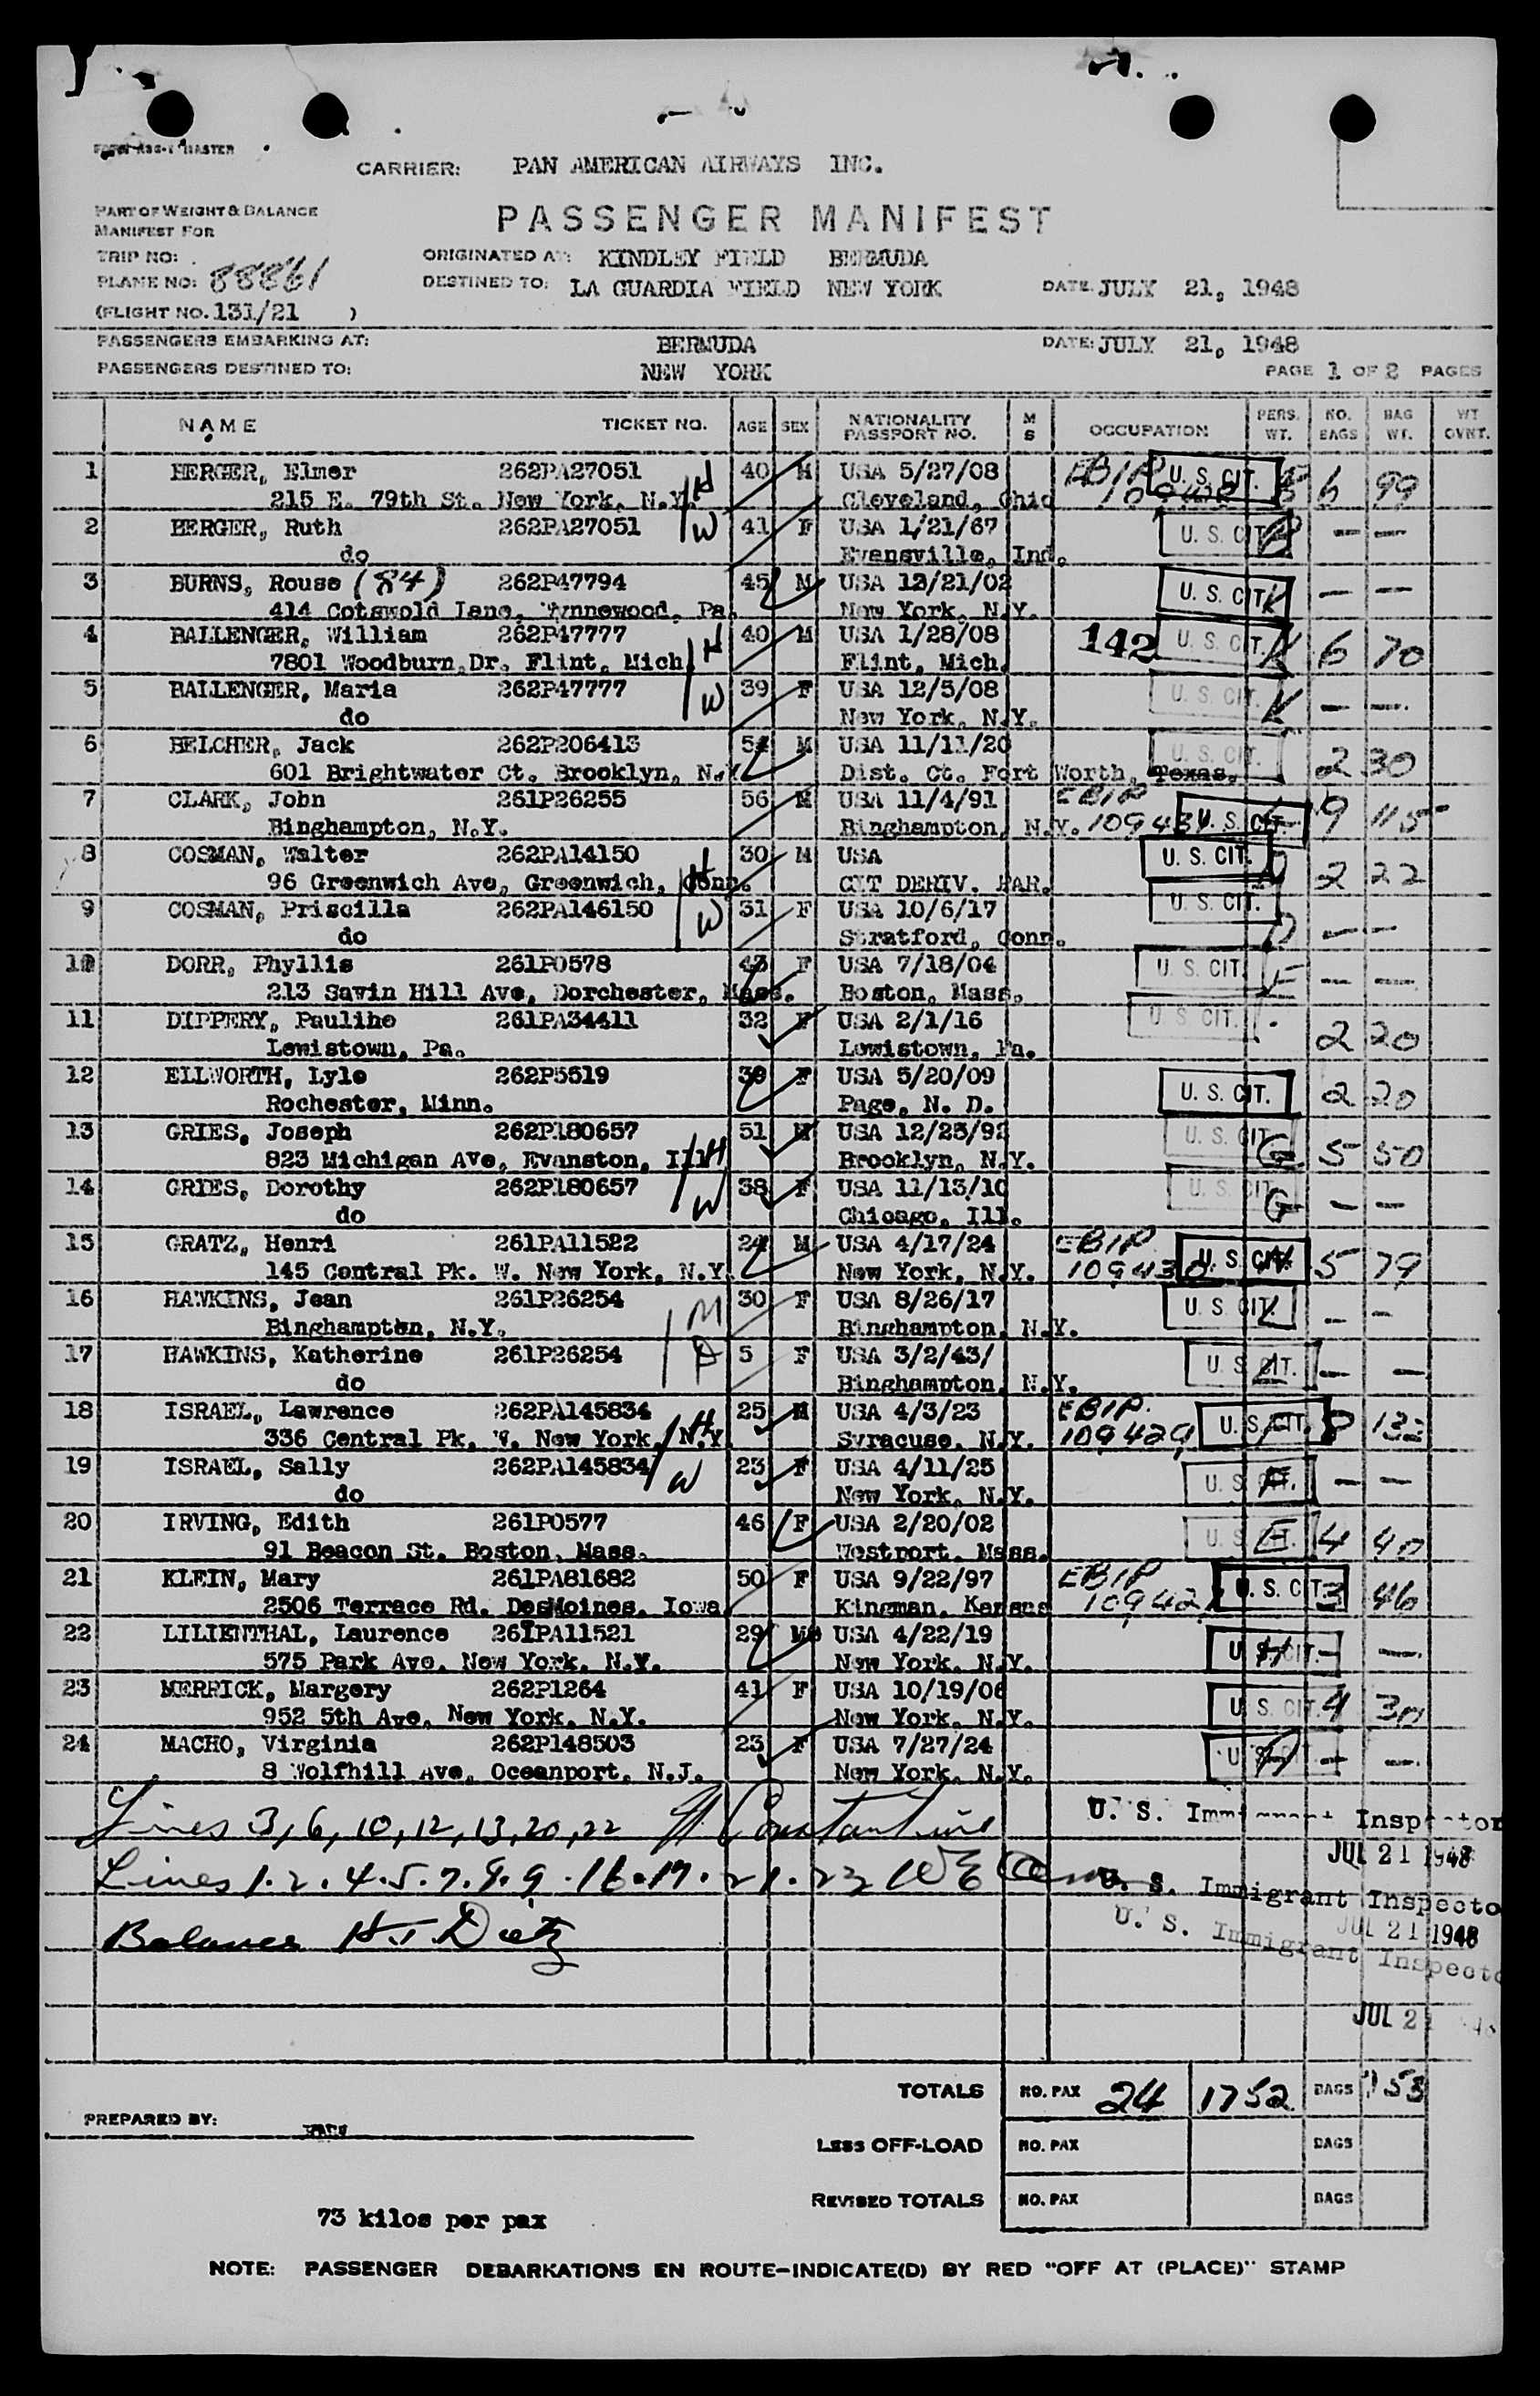 CARRIER: PAN AMERICAN AIRWAYS INC.
PART OF WEIGHT & BALANCE
MANIFEST FOR
PASSENGER MANIFEST
TRIP NO:
ORIGINATED AT: KINDLEY FIELD BERMUDA
PLANE NO: 88861
DESTINED TO: LA GUARDIA FIELD NEW YORK DATE: JULY 21, 1948
(FLIGHT NO. 131/21 )
PASSENGERS EMBARKING AT: BERMUDA DATE: JULY 21, 1948
PASSENGERS DESTINED TO: NEW YORK PAGE 1 OF 2 PAGES
NAME TICKET NO. AGE SEX NATIONALITY PASSPORT NO. M S OCCUPATION PERS. WT. NO. BAGS BAG WT. WT OVNT.
1 BERGER, Elmer 262PA27051 H 40 M USA 5/27/08 EBIP U. S. CIT. 6 99
215 E. 79th St. New York, N.Y. Cleveland, Ohio
2 BERGER, Ruth 262PA27051 W 41 F USA 1/21/67 U. S. CIT. — —
do Evansville, Ind.
3 BURNS, Rouse (84) 262P47794 45 M USA 12/21/02 U. S. CIT. K — —
414 Cotswold Lane, Wynnewood, Pa. New York, N.Y.
4 BALLENGER, William 262P47777 H 40 M USA 1/28/08 142 U. S. CIT. K 6 70
7801 Woodburn Dr. Flint, Mich. Flint, Mich.
5 BALLENGER, Maria 262P47777 W 39 F USA 12/5/08 U. S. CIT. K — —
do New York, N.Y.
6 BELCHER, Jack 262P206413 54 M USA 11/11/20 U. S. CIT. 2 30
601 Brightwater Ct. Brooklyn, N.Y. Dist. Ct. Fort Worth, Texas.
7 CLARK, John 261P26255 56 M USA 11/4/91 EBIP U. S. CIT. 9 115
Binghampton, N.Y. Binghampton, N.Y. 109431
8 COSMAN, Walter 262PA14150 H 30 M USA U. S. CIT. 2 22
96 Greenwich Ave, Greenwich, Conn. CIT DERIV. PAR.
9 COSMAN, Priscilla 262PA146150 W 31 F USA 10/6/17 U. S. CIT. — —
do Stratford, Conn.
10 DORR, Phyllis 261P0578 43 F USA 7/18/04 U. S. CIT. E — —
213 Savin Hill Ave, Dorchester, Mass. Boston, Mass.
11 DIPPERY, Pauline 261PA34411 32 F USA 2/1/16 U S CIT. 2 20
Lewistown, Pa. Lewistown, Pa.
12 ELLWORTH, Lyle 262P5519 39 F USA 5/20/09 U. S. CIT. 2 20
Rochester, Minn. Page, N. D.
13 GRIES, Joseph 262P180657 H 51 M USA 12/25/92 U. S. CIT. G 5 50
823 Michigan Ave, Evanston, Ill Brooklyn, N.Y.
14 GRIES, Dorothy 262P180657 W 38 F USA 11/13/10 U. S. CIT. G — —
do Chicago, Ill.
15 GRATZ, Henri 261PA11522 24 M USA 4/17/24 EBIP U. S. CIT. H 5 79
145 Central Pk. W. New York, N.Y. New York, N.Y. 109430
16 HAWKINS, Jean 261P26254 M 30 F USA 8/26/17 U. S. CIT. L — —
Binghampton, N.Y. Binghampton, N.Y.
17 HAWKINS, Katherine 261P26254 D 5 F USA 3/2/43/ U. S. CIT. L — —
do Binghampton, N.Y.
18 ISRAEL, Lawrence 262PA145834 H 25 M USA 4/3/23 EBIP. U. S. CIT. 8 132
336 Central Pk, W. New York, N.Y Syracuse, N.Y. 109429
19 ISRAEL, Sally 262PA145834 W 23 F USA 4/11/25 U. S. CIT. F — —
do New York, N.Y.
20 IRVING, Edith 261P0577 46 F USA 2/20/02 U. S. CIT. E 4 40
91 Beacon St. Boston, Mass. Westport, Mass.
21 KLEIN, Mary 261PA81682 50 F USA 9/22/97 EBIP U. S. CIT. 3 46
2506 Terrace Rd. DesMoines, Iowa Kingman, Kansas
22 LILIENTHAL, Laurence 261PA11521 29 M USA 4/22/19 U. S. CIT. H — —
575 Park Ave. New York, N.Y. New York, N.Y.
23 MERRICK, Margery 262P1264 41 F USA 10/19/06 U. S. CIT. 4 30
952 5th Ave, New York, N.Y. New York, N.Y.
24 MACHO, Virginia 262P148503 23 F USA 7/27/24 U. S. — —
8 Wolfhill Ave, Oceanport, N.J. New York, N.Y.
Lines 3, 6, 10, 12, 13, 20, 22 Constantine U. S. Immigrant Inspector
JUL 21 1948
Lines 1. 2. 4. 5. 7. 8. 9. 16. 17. 21. 23 U. S. Immigrant Inspector
JUL 21 1948
Balance H.J. Dietz U. S. Immigrant Inspector
JUL 21
TOTALS NO. PAX 24 1752 BAGS 53
PREPARED BY:
LESS OFF-LOAD NO. PAX BAGS
REVISED TOTALS NO. PAX BAGS
73 kilos per pax
NOTE: PASSENGER DEBARKATIONS EN ROUTE-INDICATE(D) BY RED "OFF AT (PLACE)" STAMP